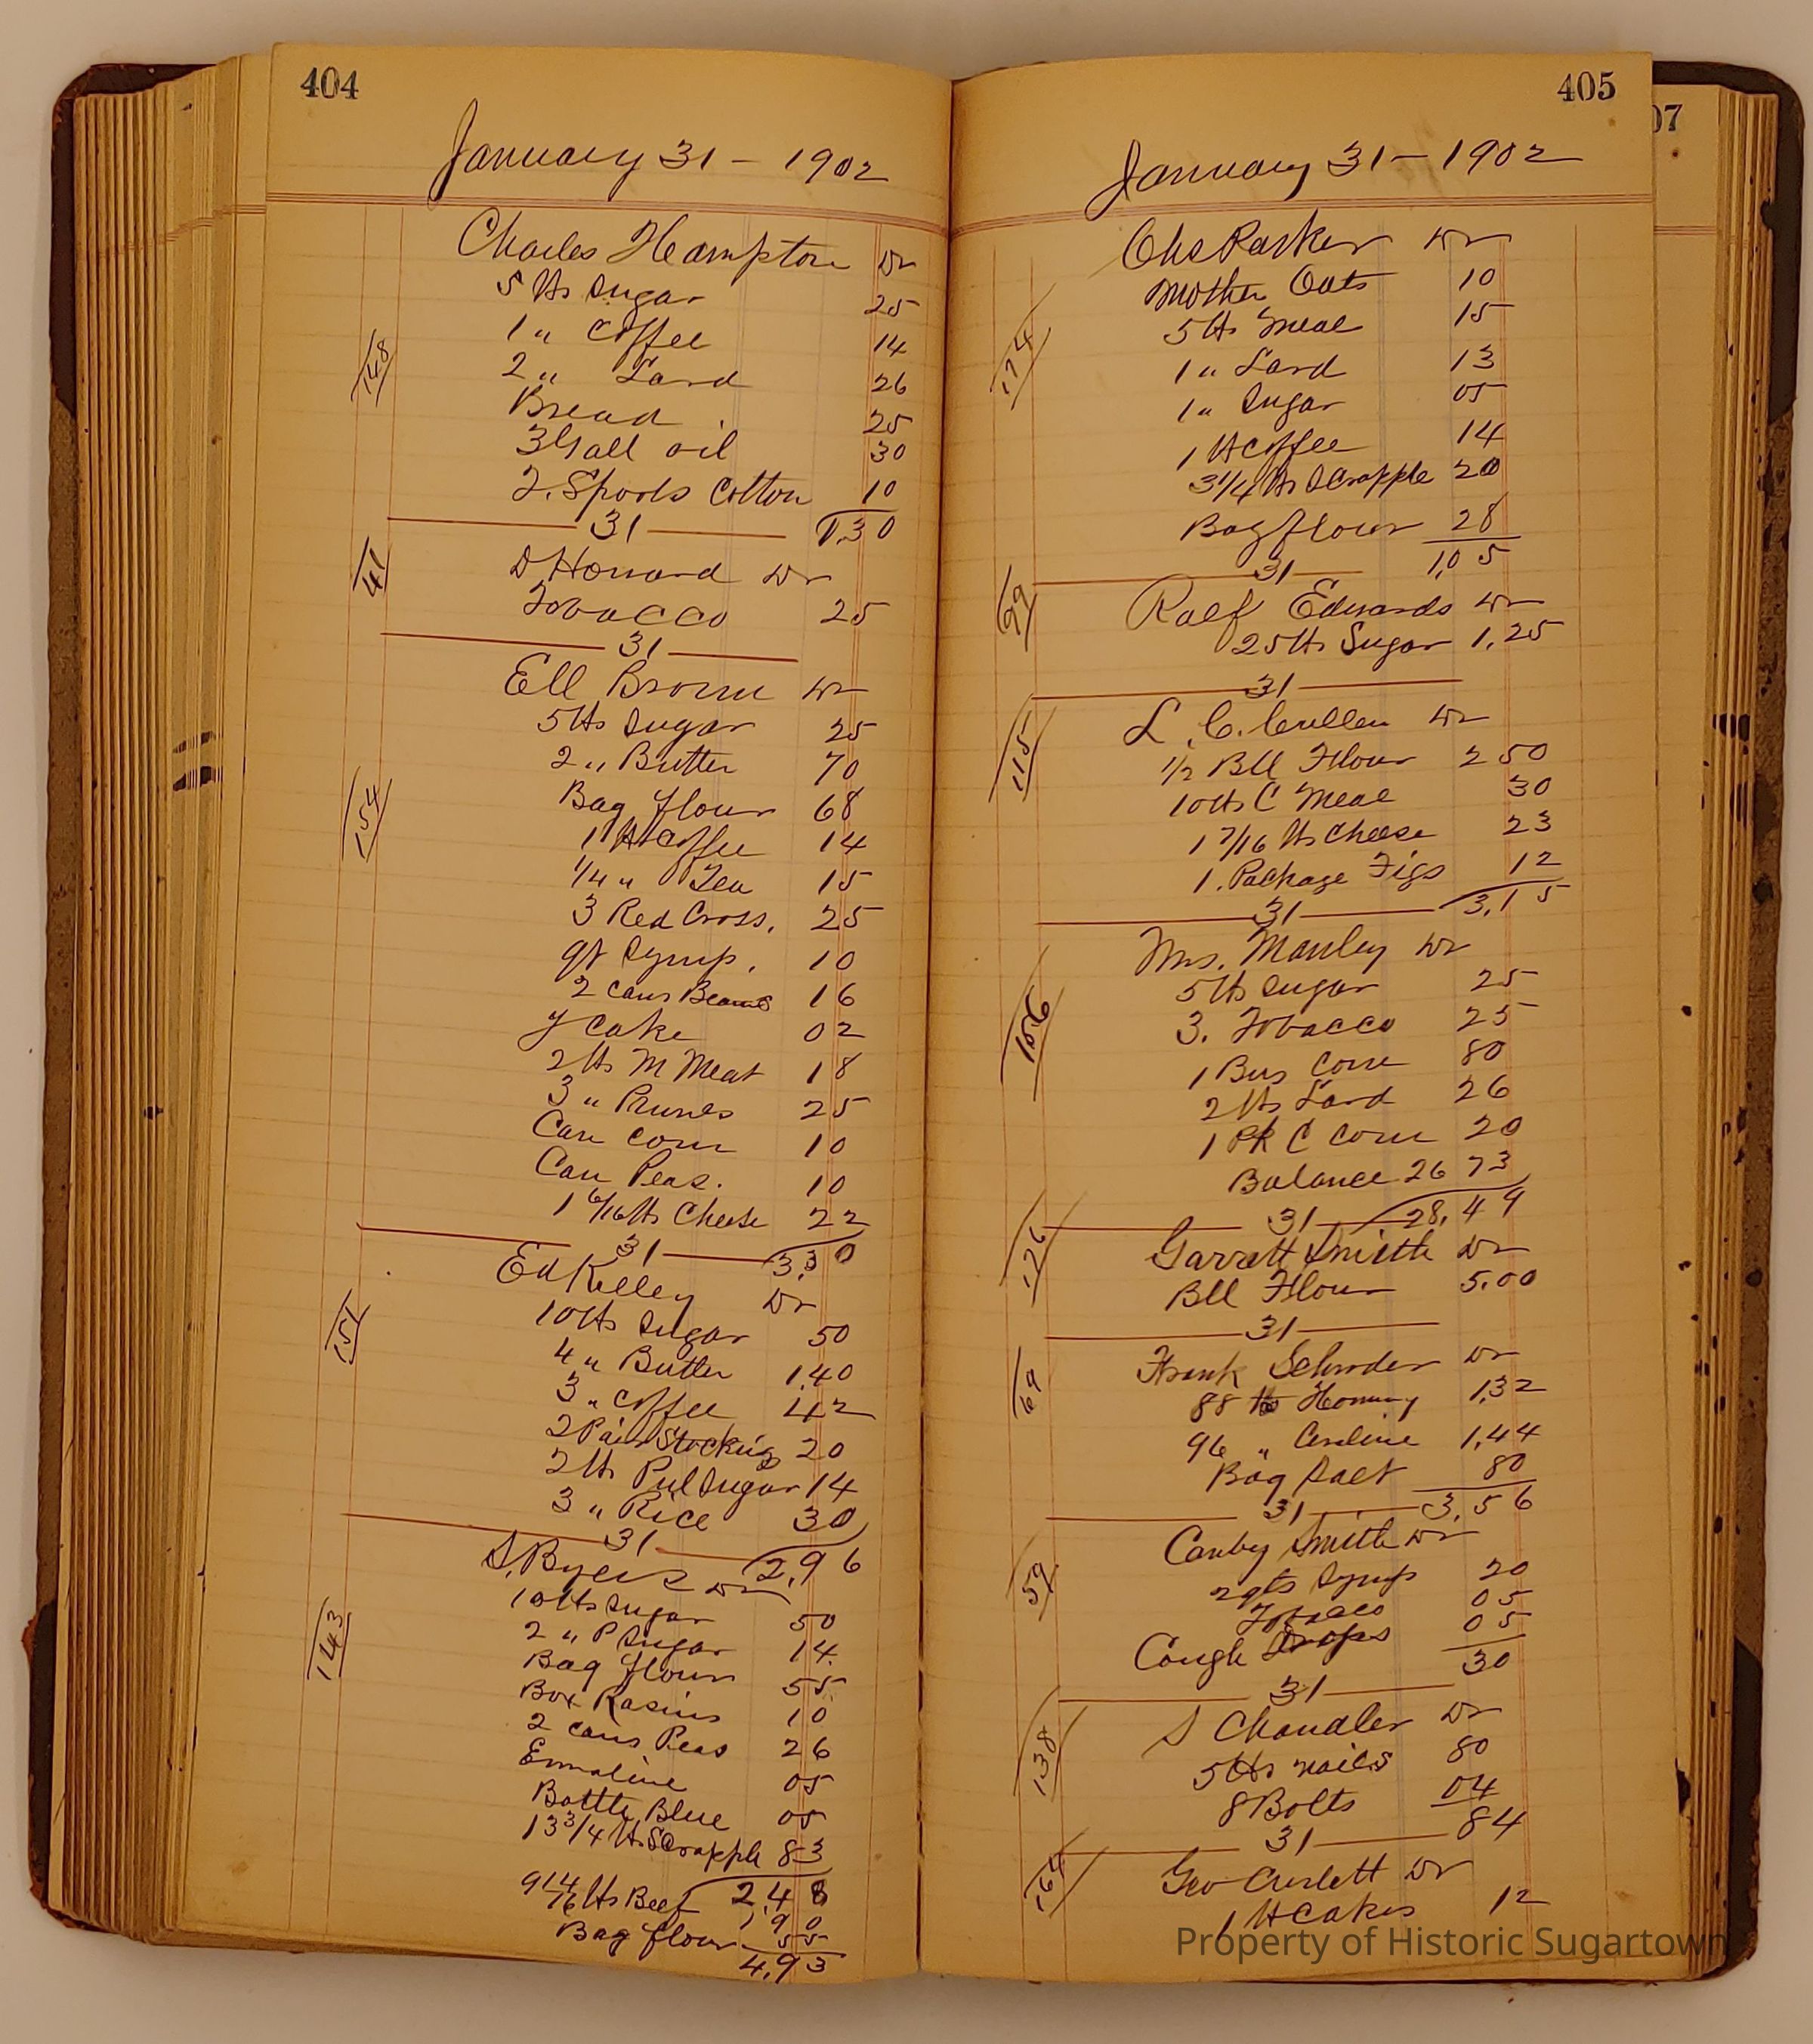 404
January 31 - 1902
Charles Hampton Dr
5 lbs Sugar 25
148
1 " Coffee 14
2 " Lard 26
Bread 25
3 Gall oil 30
2. Spools Cotton 10
31 1.30
41
D Howard Dr
Tobacco 25
31
Ell Brown Dr
5 lbs Sugar 25
2 " Butter 70
154
Bag flour 68
1 lb Coffee 14
1/4 " Tea 15
3 Red Cross. 25
qt Syrup. 10
2 cans Beans 16
y Cake 02
2 lbs M Meat 18
3 " Prunes 25
Can corn 10
Can Peas. 10
1 6/16 lbs Cheese 22
31 3.30
Ed Kelley Dr
151
10 lbs Sugar 50
4 " Butter 1.40
3 " Coffee 42
2 Pair Stockings 20
2 lb Pul Sugar 14
3 " Rice 30
31 2.96
S. Byers Dr
143
10 lbs Sugar 50
2 " P Sugar 14.
Bag flour 55
Box Rasins 10
2 cans Peas 26
Enmaline 05
Bottle Blue 05
13 3/4 lb Scrapple 83
2.48
9 14/16 lbs Beef 1 90
Bag flour 55
4.93
405
07
January 31 - 1902
Chs Parker Dr
Mother Oats 10
174
5 lbs Meal 15
1 " Lard 13
1 " Sugar 05
1 lb Coffee 14
3 1/4 lbs Scrapple 20
Bag flour 28
31 1.05
29
Ralf Edwards Dr
25 lbs Sugar 1.25
31
115
L. C. Cullen Dr
1/2 Bll Flour 2 50
10 lbs C Meal 30
1 7/16 lbs Cheese 23
1. Package Figs 12
31 3.15
Mrs. Manley Dr
156
5 lbs Sugar 25
3. Tobacco 25
1 Bus Corn 80
2 lbs Lard 26
1 Pk C Corn 20
Balance 26 73
31 28.49
126
Garrett Smith Dr
Bll Flour 5.00
31
69
Frank Schroder Dr
88 lbs Hominy 1.32
96 " 1.44
Bag Salt 80
31 3.56
59
Canby Smith Dr
2 qts Syrup 20
Tobacco 05
Cough Drops 05
30
31
138
S Chandler Dr
5 lbs nails 80
8 Bolts 04
31 84
164
Geo Curlett Dr
1 lb Cakes 12
Property of Historic Sugartown